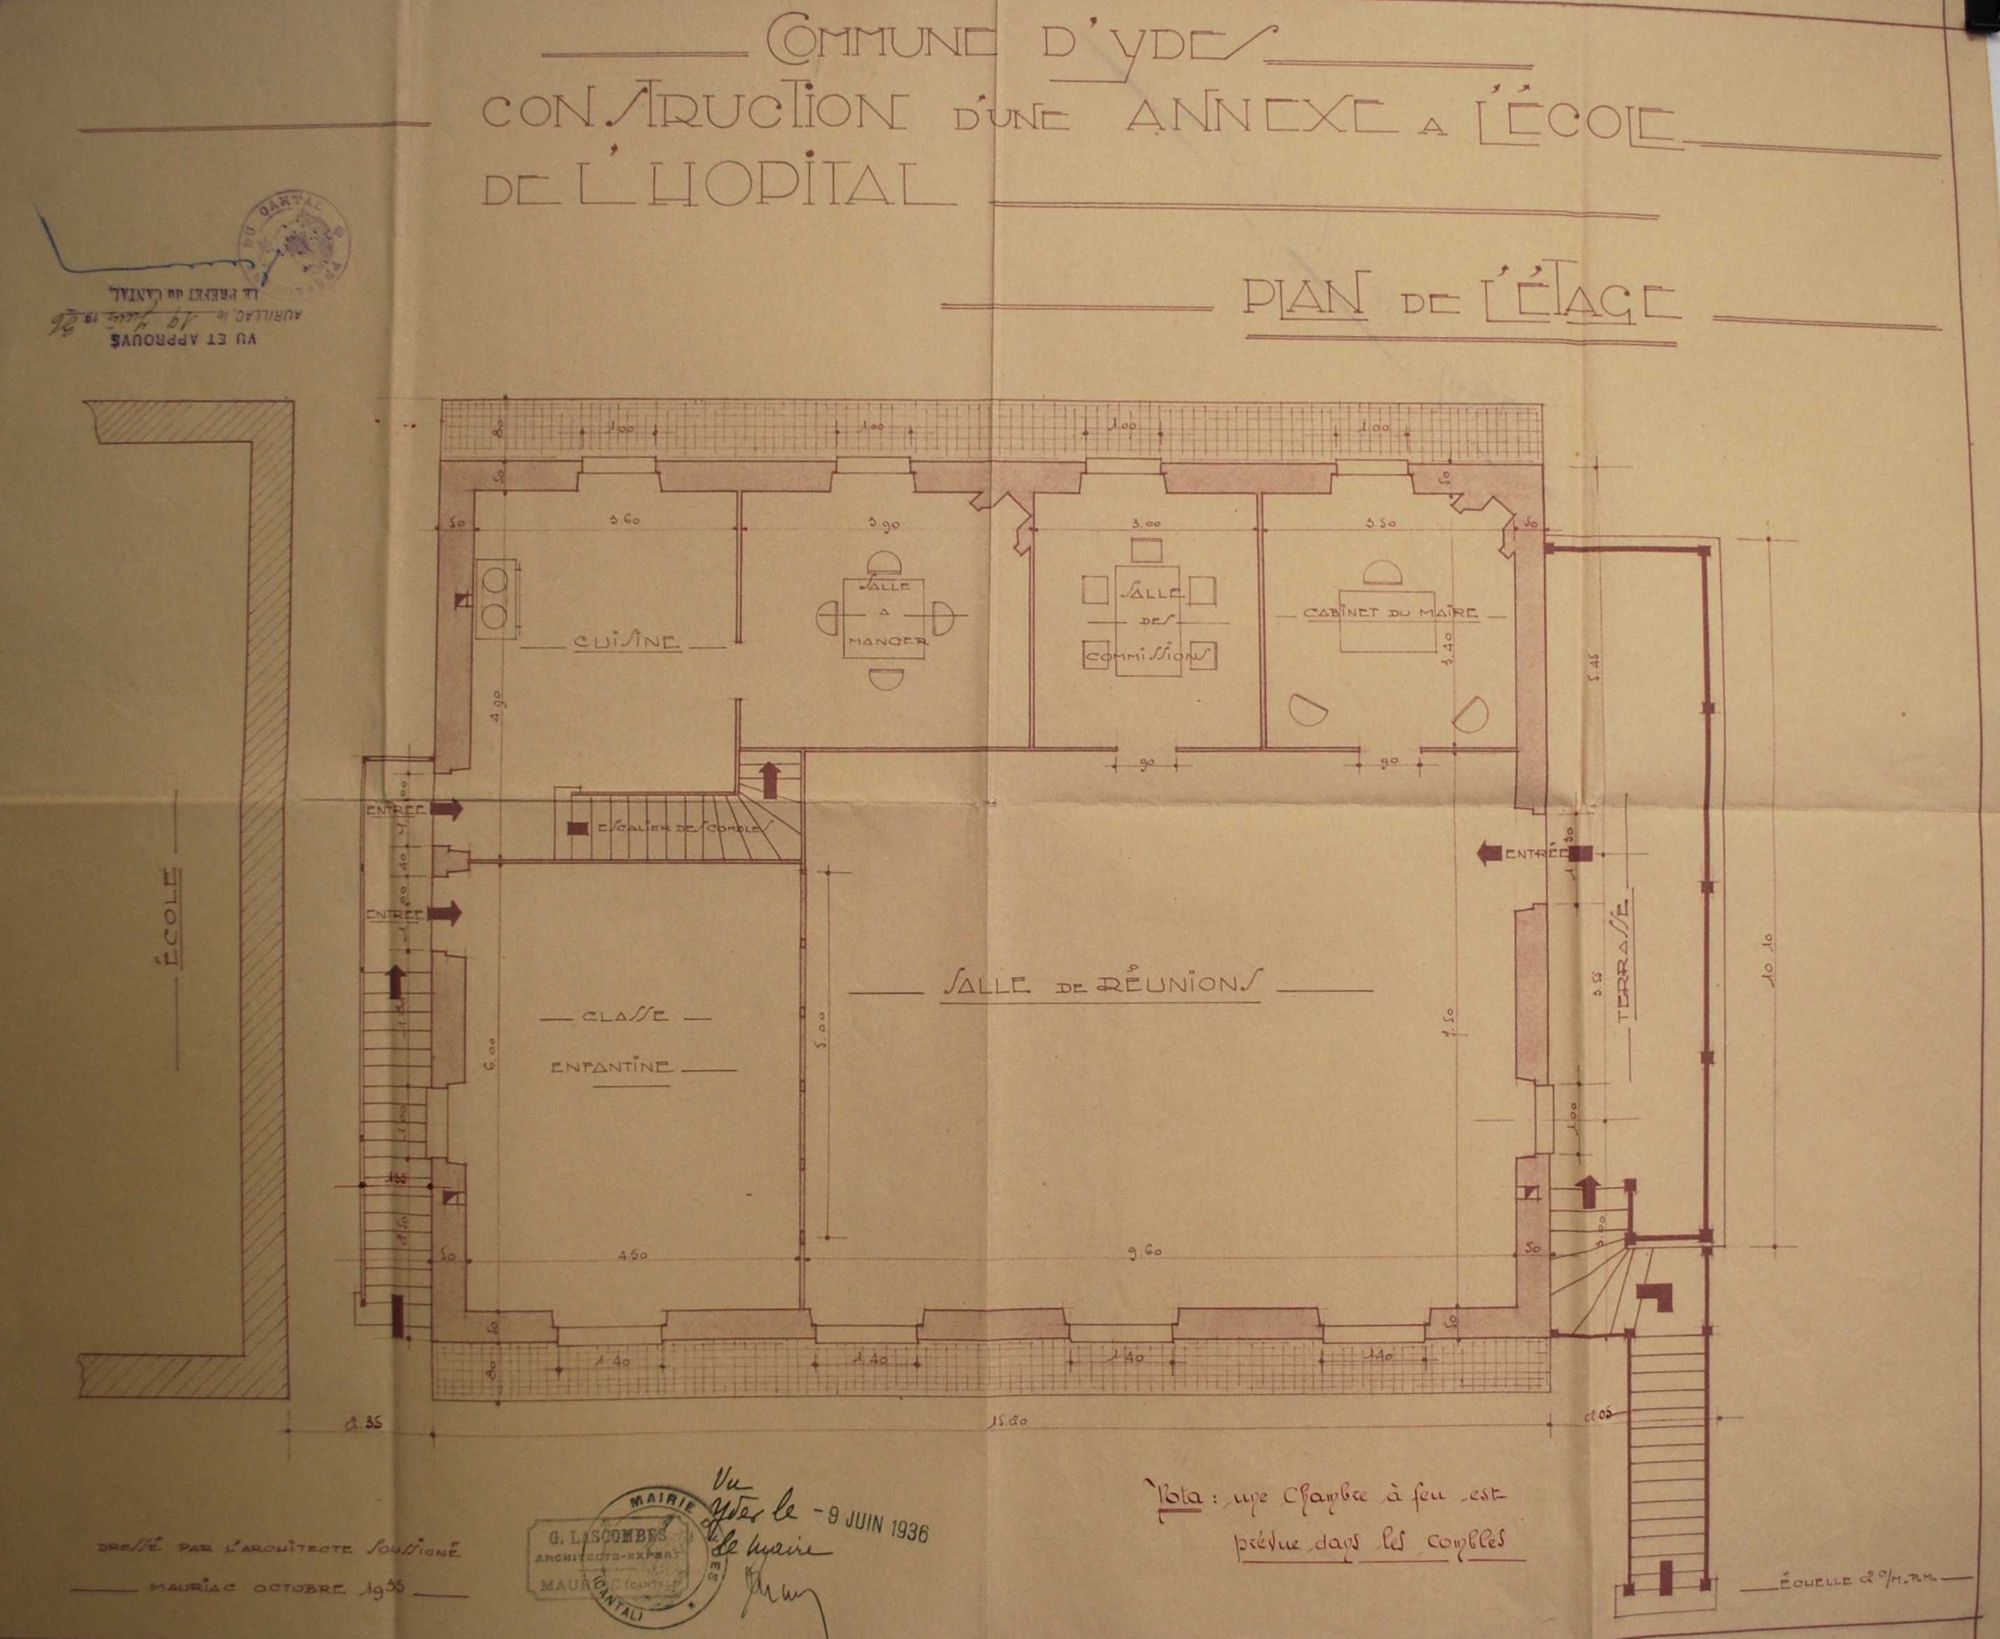 COMMUNE D'YDES
CONSTRUCTION D'UNE ANNEXE A L'ÉCOLE
DE L'HOPITAL
PLAN DE L'ÉTAGE
DU CANTAL
LE PREFET DU CANTAL,
AURILLAC, le 19 Juin 1936
VU ET APPROUVÉ
80
1.00
1.00
1.00
1.00
50
50
50
3.60
3.90
3.00
3.50
50
SALLE
A
MANGER
SALLE
DES
COMMISSIONS
CABINET DU MAIRE
CUISINE
3.40
5.45
4.90
90
90
ENTRÉE
ESCALIER DES COMBLES
ENTRÉE
ENTRÉE
40
1.00
ÉCOLE
TERRASSE
10.10
SALLE DE RÉUNIONS
CLASSE
ENFANTINE
6.00
5.00
7.50
3.55
1.00
1.00
50
4.50
9.60
50
50
50
80
1.40
1.40
1.40
1.40
2.35
15.20
2.05
Vu
Ydes le - 9 JUIN 1936
le maire
MAIRIE D'YDES
(CANTAL)
G. LASCOMBES
ARCHITECTE-EXPERT
MAURIAC (CANTAL)
Nota : une Chambre à feu est
prévue dans les combles
DRESSÉ PAR L'ARCHITECTE SOUSSIGNÉ
MAURIAC OCTOBRE 1935
ÉCHELLE 2 C/M. P.M.